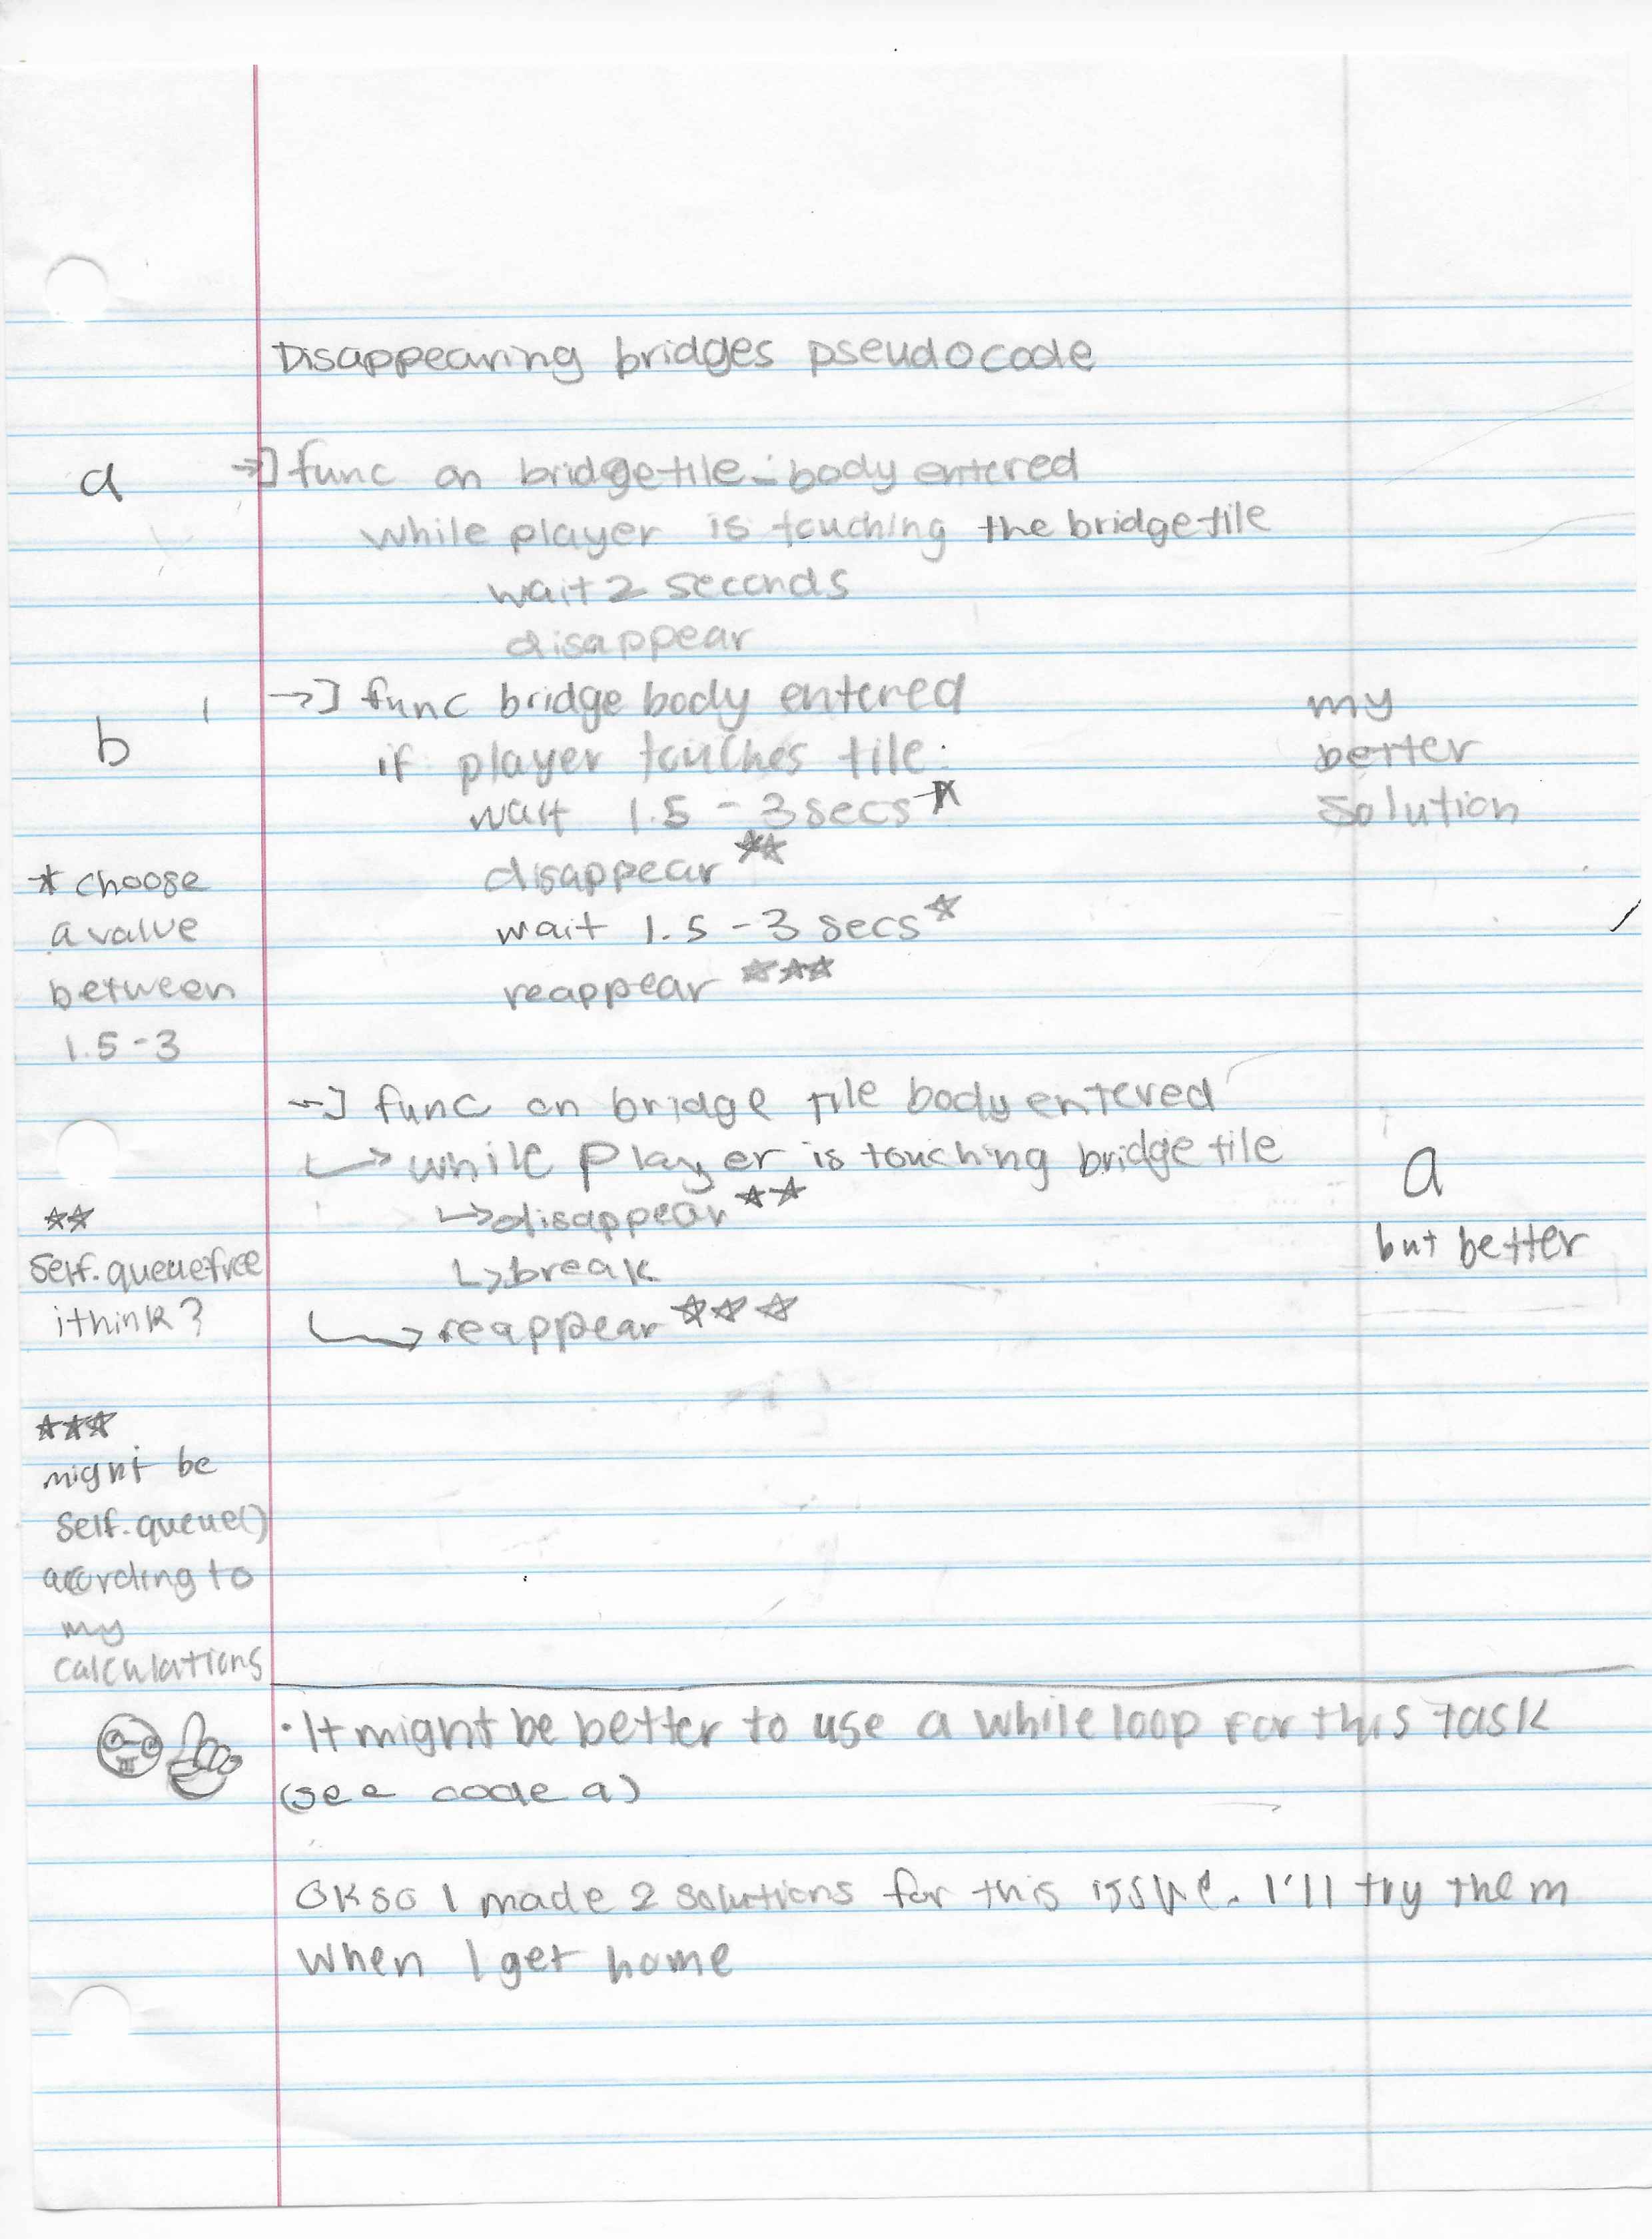 Disappearing bridges pseudocode
a →] func on bridgetile_body entered
while player is touching the bridgetile
wait 2 seconds
disappear
b →] func bridge body entered
if player touches tile:
wait 1.5 - 3 secs *
disappear **
wait 1.5 - 3 secs *
reappear ***
my
better
solution
* choose
a value
between
1.5 - 3
→] func on bridge tile body entered
↳ while player is touching bridge tile
↳ disappear **
↳ break
↳ reappear ***
a
but better
**
self.queuefree
i think?
***
might be
self.queue()
acording to
my
calculations
• It might be better to use a while loop for this task
(see code a)
OK so I made 2 solutions for this issue. I'll try them
when I get home